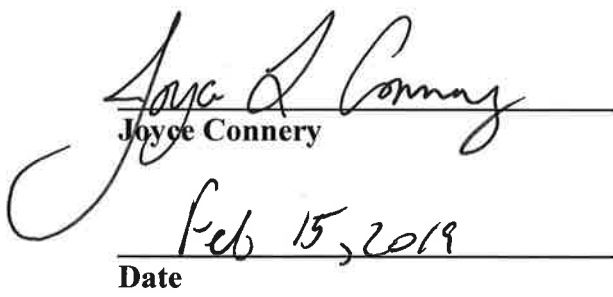 Joyce L Connery
Joyce Connery
Feb 15, 2019
Date